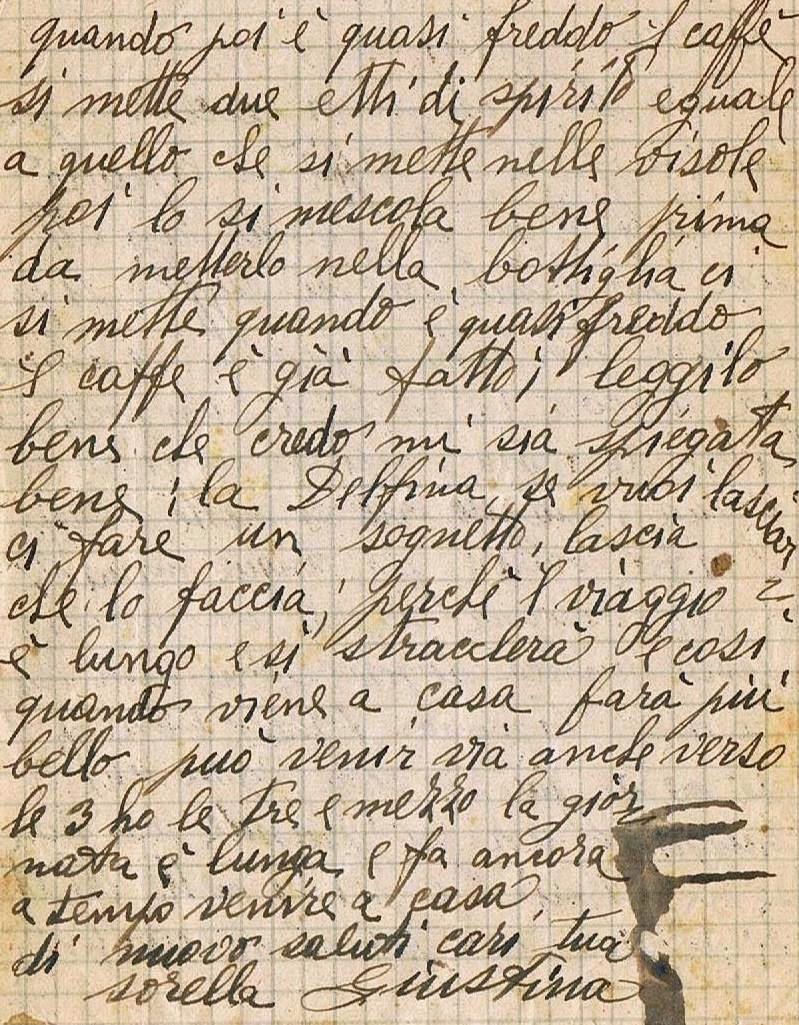 quando poi è quasi freddo 'l caffè
si mette due etti di spirito eguale
a quello che si mette nelle visole
poi lo si mescola bene prima
da metterlo nella bottiglia ci
si mette quando è quasi freddo
'l caffe è già fatto; leggilo
bene che credo mi sia spiegata
bene; la Delfina se vuoi lasciar
ci fare un sognetto, lascia
che lo faccia; perchè 'l viaggio
è lungo e si straccherà e così
quando viene a casa farà più
bello può venir via anche verso
le 3 ho le tre e mezzo la gior
nata è lunga e fa ancora
a tempo venire a casa
di nuovo saluti cari tua
sorella Giustina